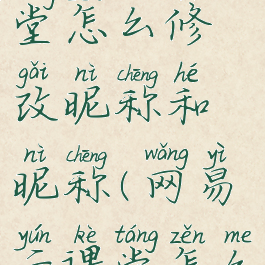 堂怎么修
gǎi nì chēng hé
改昵称和
nì chēng wǎng yì
昵称(网易
yún kè táng zěn me
云课堂怎么